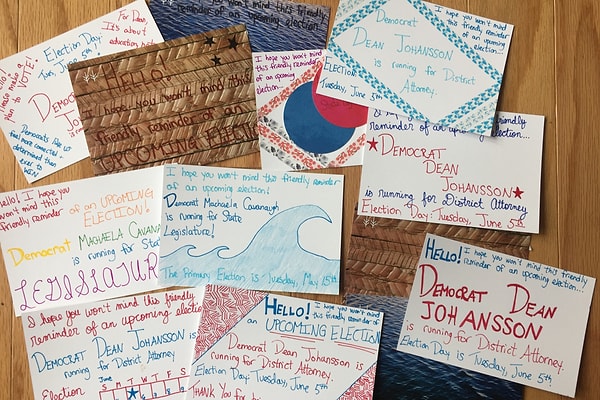 For Dean,
It's about
education not
Election Day:
Tues, June 5th!!
Please make a
plan to VOTE!
Democrat
Democrats like us
feel more connected +
determined than
ever to
WIN
friendly reminder of an
upcoming election!
HELLO!
I hope you won't mind this
friendly reminder of an
UPCOMING ELECTION
I hope you won't mind
this friendly reminder
of an upcoming
election...
Democrat
Dean Johansson
is running for District
Attorney.
I hope you won't mind
this friendly reminder
of an upcoming
election...
Election
Tuesday, June 5th
friendly
reminder of an upcoming election...
Democrat
Dean
Johansson
is running for District Attorney
Election Day: Tuesday, June 5th
Hello! I hope you
won't mind this
friendly reminder
of an UPCOMING
ELECTION!
Democrat Machaela
is running for State
LEGISLATUR
I hope you won't mind this friendly reminder
of an upcoming election!
Democrat Machaela Cavanaugh
is running for State
Legislature!
The Primary Election is Tuesday, May 15th
HELLO! I hope you won't mind this friendly
reminder of an upcoming election...
Democrat Dean
Johansson
is running for District Attorney.
Election Day is Tuesday, June 5th
I hope you won't mind this friendly
reminder of an upcoming election
Democrat Dean Johansson is
running for District
Attorney
Election
June
S M T W T F S
HELLO! I hope you won't mind this
friendly reminder of
an UPCOMING ELECTION
Democrat Dean Johansson is
running for District Attorney.
Election Day: Tuesday, June 5th
THANK YOU for